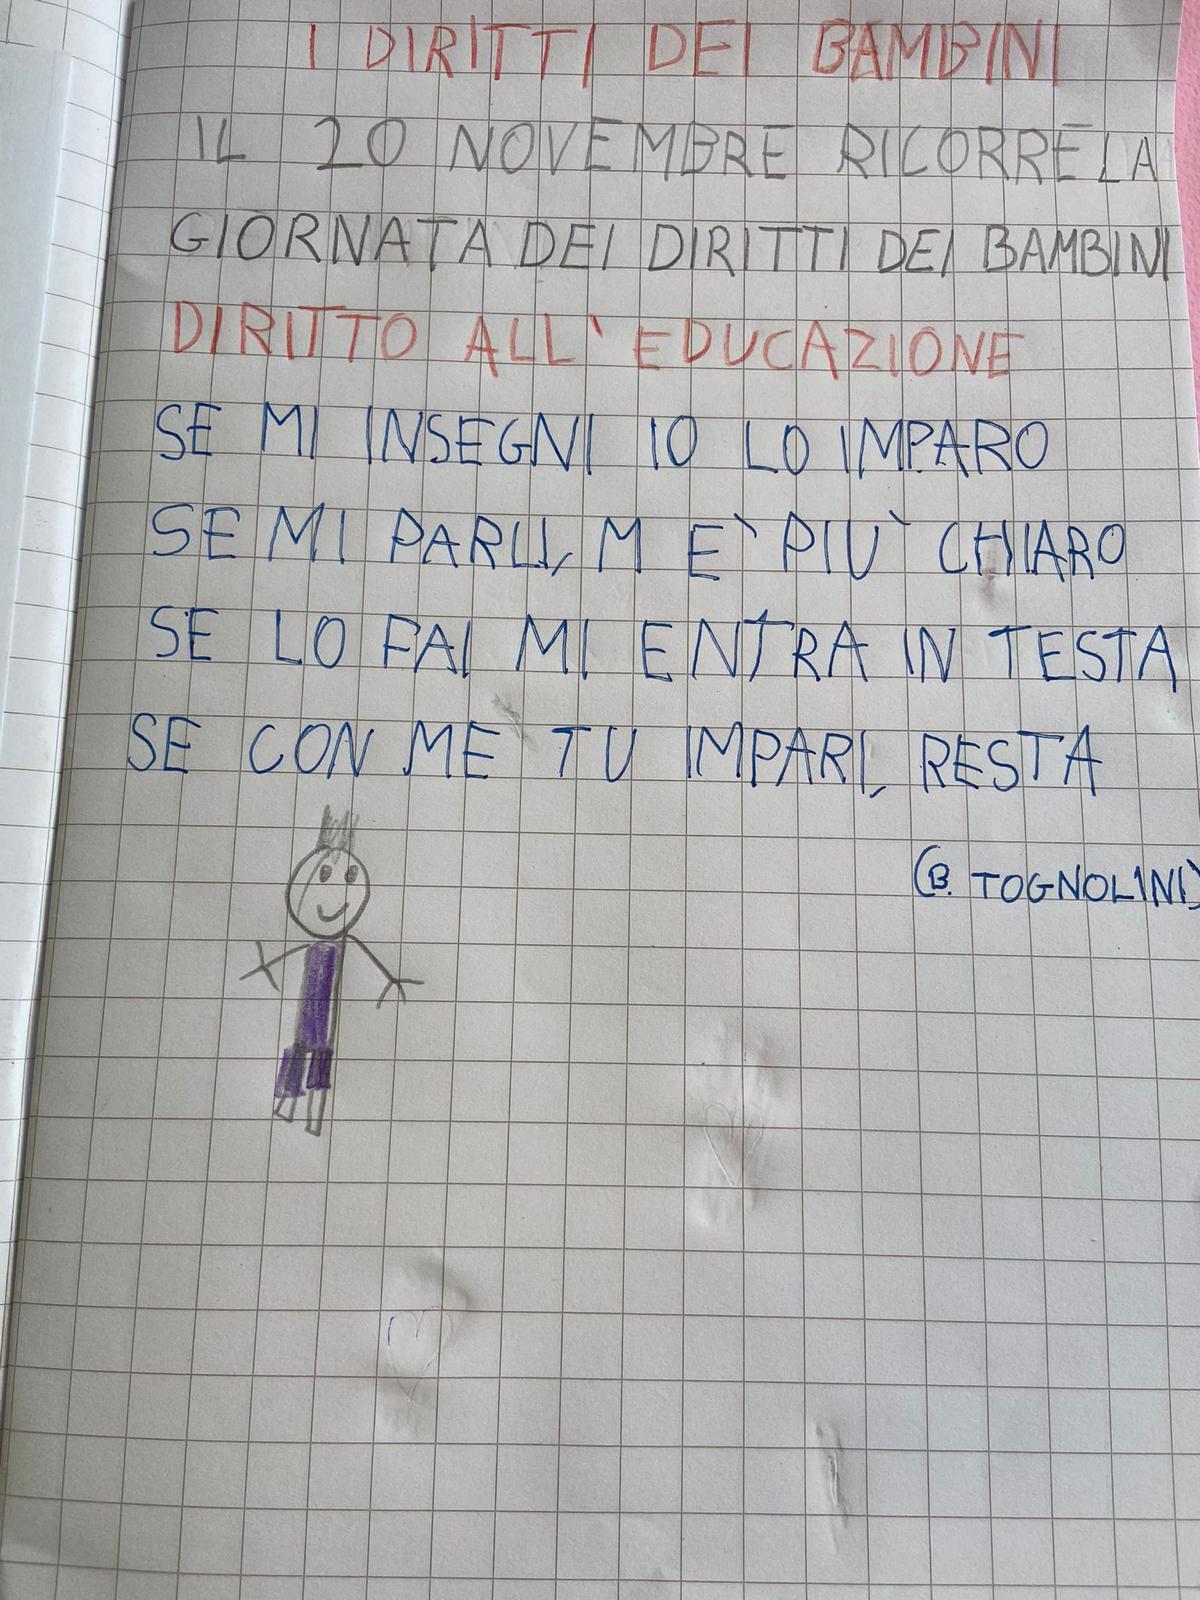 I DIRITTI DEI BAMBINI
IL 20 NOVEMBRE RICORRE LA
GIORNATA DEI DIRITTI DEI BAMBINI
DIRITTO ALL'EDUCAZIONE
SE MI INSEGNI IO LO IMPARO
SE MI PARLI, M È PIÙ CHIARO
SE LO FAI MI ENTRA IN TESTA
SE CON ME TU IMPARI, RESTA
(B. TOGNOLINI)